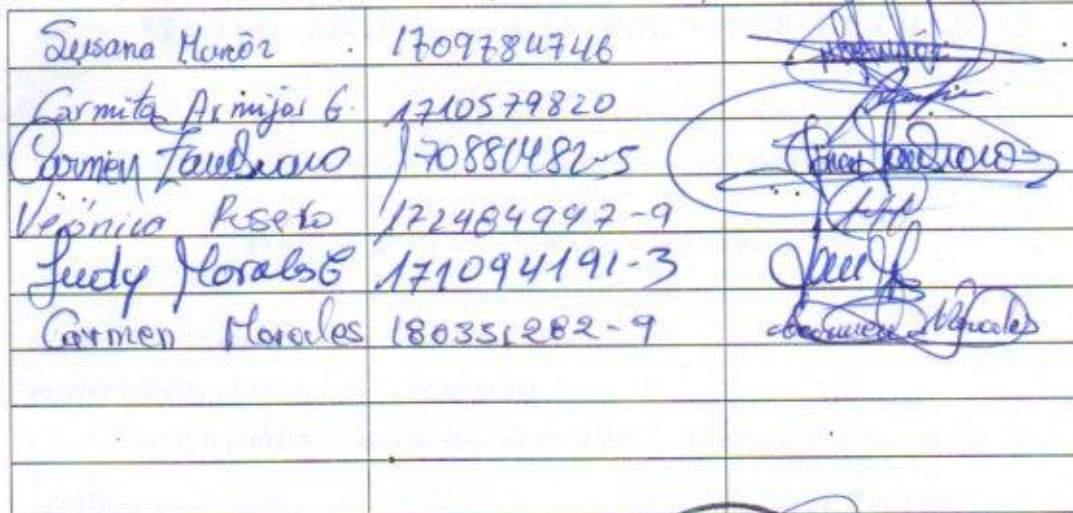 Susana Munõz 1709784746
Carmita Armijos G. 1710579820
Carmen Zambrano 170881482-5
Verónica Rosero 172484997-9
Judy Morales G 171094191-3
Carmen Morales 180351282-9 Carmen Morales